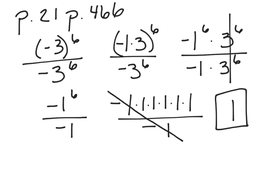 p. 21 p. 466
(-3)^6 / -3^6   (-1·3)^6 / -3^6   -1^6 · 3^6 / -1 · 3^6
-1^6 / -1   -1·1·1·1·1·1 / -1   1